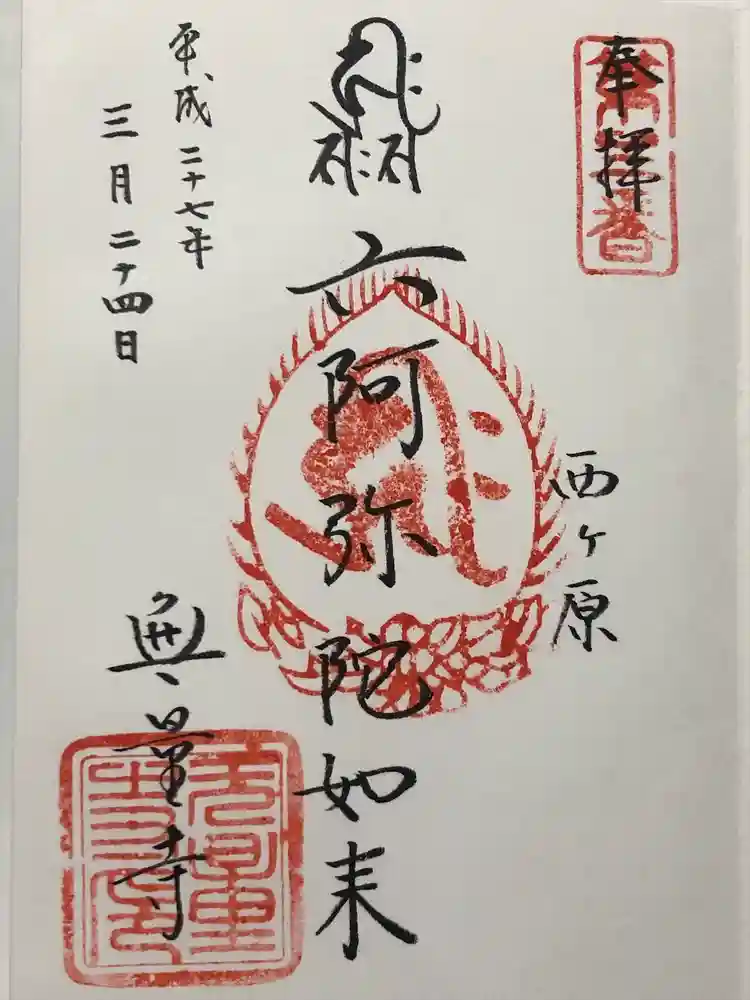 奉拝
西ケ原
六阿弥陀如来
平成二十七年
三月二十四日
無量寺